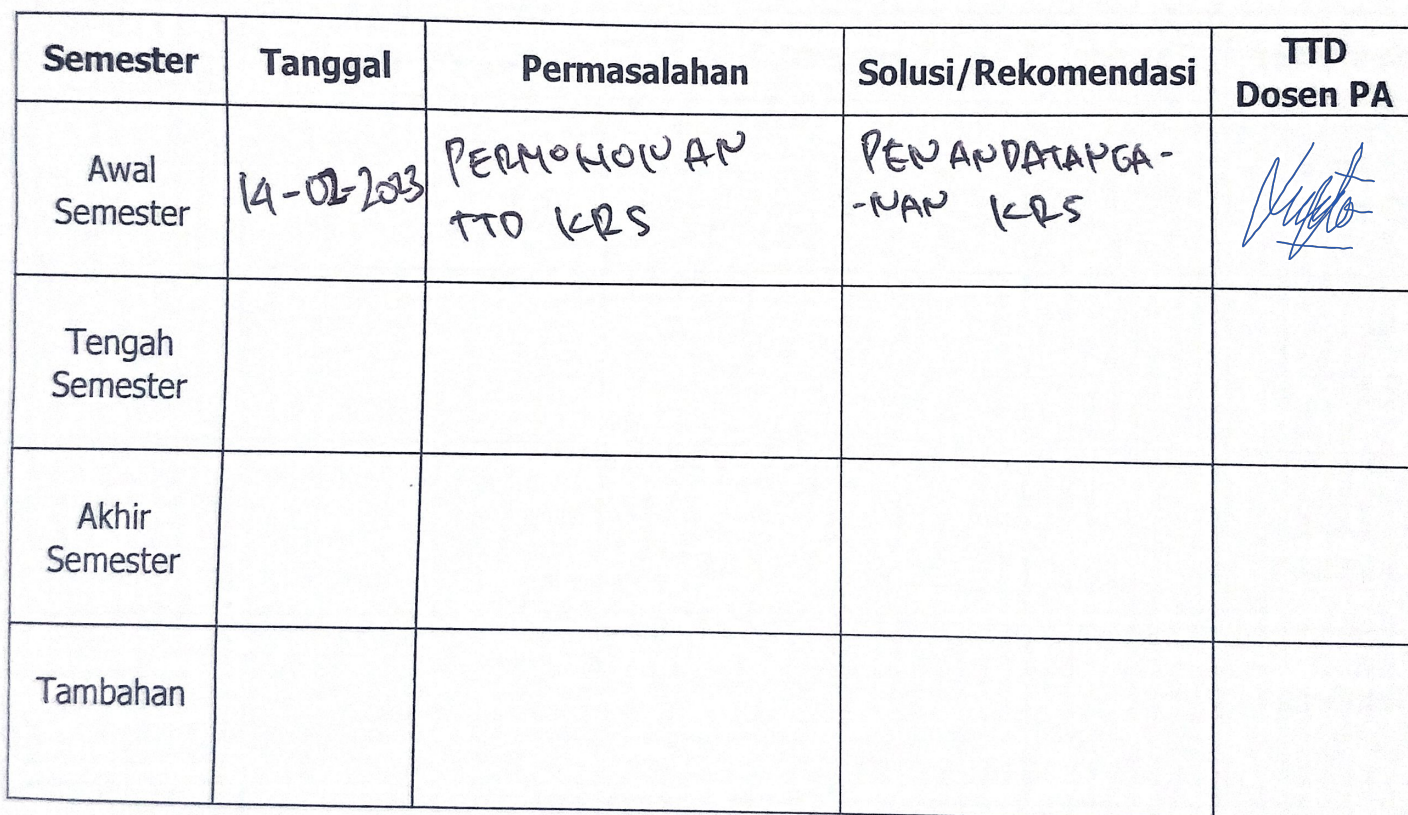 Semester Tanggal Permasalahan Solusi/Rekomendasi TTD
Dosen PA
Awal
Semester
14-02-2023
PERMOHONAN
TTD KRS
PENANDATANGA-
-NAN KRS
Tengah
Semester
Akhir
Semester
Tambahan